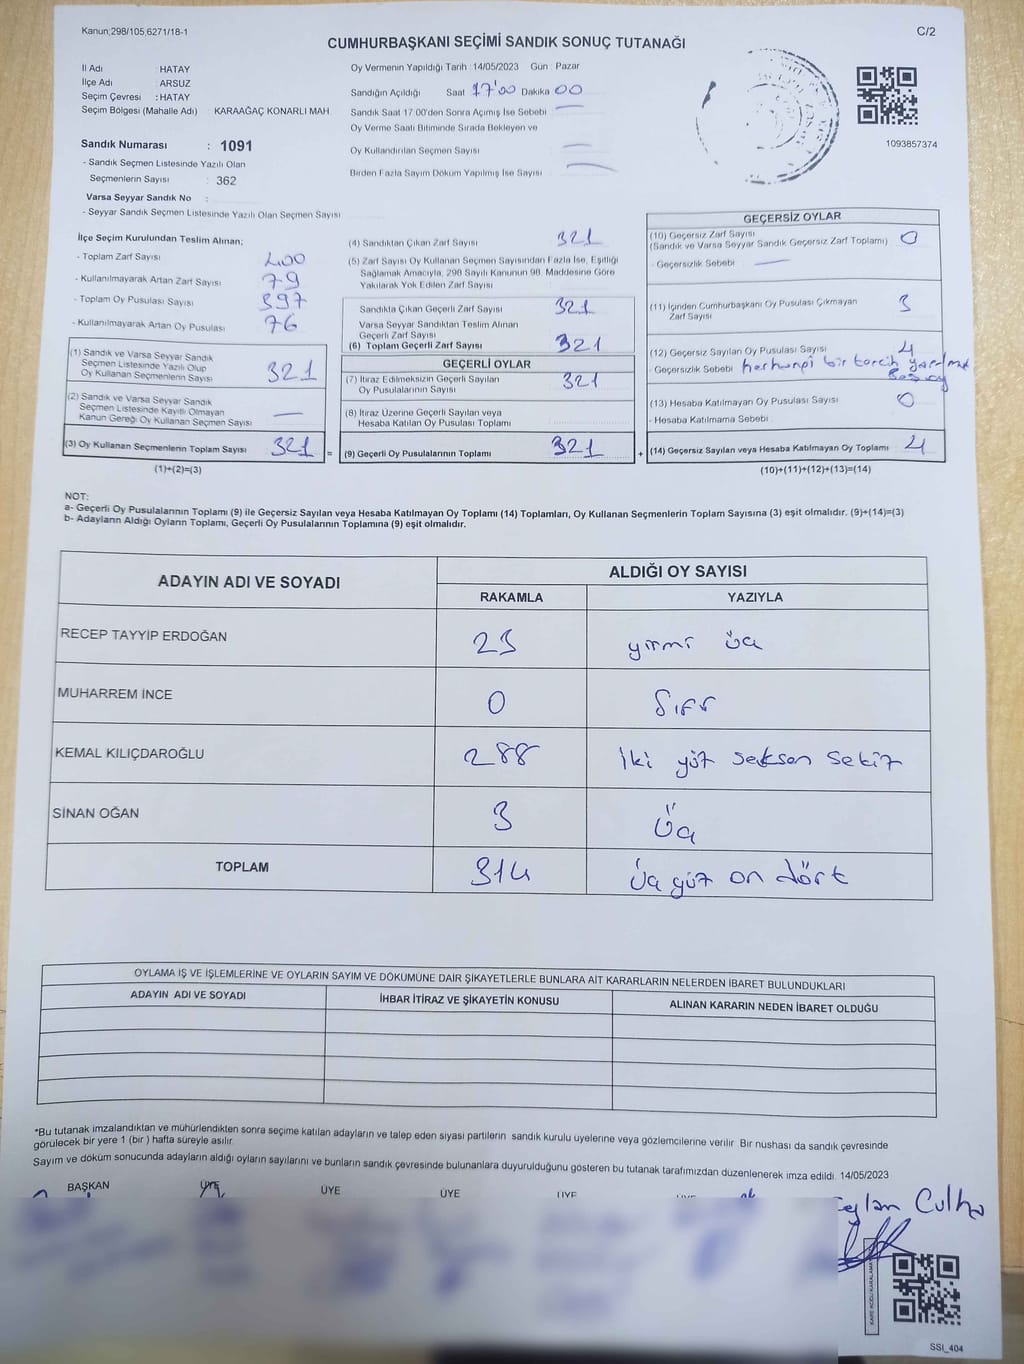 Kanun;298/105,6271/18-1
C/2
CUMHURBAŞKANI SEÇİMİ SANDIK SONUÇ TUTANAĞI
İl Adı : HATAY
İlçe Adı : ARSUZ
Seçim Çevresi : HATAY
Seçim Bölgesi (Mahalle Adı) KARAAĞAÇ KONARLI MAH.
Sandık Numarası : 1091
- Sandık Seçmen Listesinde Yazılı Olan
Seçmenlerin Sayısı : 362
Varsa Seyyar Sandık No :
- Seyyar Sandık Seçmen Listesinde Yazılı Olan Seçmen Sayısı
Oy Vermenin Yapıldığı Tarih : 14/05/2023 Gün : Pazar
Sandığın Açıldığı Saat 17:00 Dakika 00
Sandık Saat 17:00'den Sonra Açımış İse Sebebi
Oy Verme Saati Bitiminde Sırada Bekleyen ve
Oy Kullandırılan Seçmen Sayısı
Birden Fazla Sayım Döküm Yapılmış İse Sayısı
1093857374
İlçe Seçim Kurulundan Teslim Alınan;
- Toplam Zarf Sayısı 400
- Kullanılmayarak Artan Zarf Sayısı 79
- Toplam Oy Pusulası Sayısı 397
- Kullanılmayarak Artan Oy Pusulası 76
(1) Sandık ve Varsa Seyyar Sandık
Seçmen Listesinde Yazılı Olup
Oy Kullanan Seçmenlerin Sayısı 321
(2) Sandık ve Varsa Seyyar Sandık
Seçmen Listesinde Kayıtlı Olmayan
Kanun Gereği Oy Kullanan Seçmen Sayısı —
(3) Oy Kullanan Seçmenlerin Toplam Sayısı 321 =
(1)+(2)=(3)
(4) Sandıktan Çıkan Zarf Sayısı 321
(5) Zarf Sayısı Oy Kullanan Seçmen Sayısından Fazla İse, Eşitliği
Sağlamak Amacıyla, 298 Sayılı Kanunun 98. Maddesine Göre
Yakılarak Yok Edilen Zarf Sayısı
Sandıkta Çıkan Geçerli Zarf Sayısı 321
Varsa Seyyar Sandıktan Teslim Alınan
Geçerli Zarf Sayısı
(6) Toplam Geçerli Zarf Sayısı 321
GEÇERLİ OYLAR
(7) İtiraz Edilmeksizin Geçerli Sayılan
Oy Pusulalarının Sayısı 321
(8) İtiraz Üzerine Geçerli Sayılan veya
Hesaba Katılan Oy Pusulası Toplamı
(9) Geçerli Oy Pusulalarının Toplamı 321 +
GEÇERSİZ OYLAR
(10) Geçersiz Zarf Sayısı
(Sandık ve Varsa Seyyar Sandık Geçersiz Zarf Toplamı) 0
- Geçersizlik Sebebi —
(11) İçinden Cumhurbaşkanı Oy Pusulası Çıkmayan
Zarf Sayısı 3
(12) Geçersiz Sayılan Oy Pusulası Sayısı 4
- Geçersizlik Sebebi herhangi bir tercih
(13) Hesaba Katılmayan Oy Pusulası Sayısı 0
- Hesaba Katılmama Sebebi
(14) Geçersiz Sayılan veya Hesaba Katılmayan Oy Toplamı 4
(10)+(11)+(12)+(13)=(14)
NOT:
a- Geçerli Oy Pusulalarının Toplamı (9) ile Geçersiz Sayılan veya Hesaba Katılmayan Oy Toplamı (14) Toplamları, Oy Kullanan Seçmenlerin Toplam Sayısına (3) eşit olmalıdır. (9)+(14)=(3)
b- Adayların Aldığı Oyların Toplamı, Geçerli Oy Pusulalarının Toplamına (9) eşit olmalıdır.
ADAYIN ADI VE SOYADI
ALDIĞI OY SAYISI
RAKAMLA YAZIYLA
RECEP TAYYİP ERDOĞAN 23 yirmi üç
MUHARREM İNCE 0 Sıfır
KEMAL KILIÇDAROĞLU 288 İki yüz seksen sekiz
SİNAN OĞAN 3 Üç
TOPLAM 314 Üç yüz on dört
OYLAMA İŞ VE İŞLEMLERİNE VE OYLARIN SAYIM VE DÖKÜMÜNE DAİR ŞİKAYETLERLE BUNLARA AİT KARARLARIN NELERDEN İBARET BULUNDUKLARI
ADAYIN ADI VE SOYADI İHBAR İTİRAZ VE ŞİKAYETİN KONUSU ALINAN KARARIN NEDEN İBARET OLDUĞU
*Bu tutanak imzalandıktan ve mühürlendikten sonra seçime katılan adayların ve talep eden siyasi partilerin sandık kurulu üyelerine veya gözlemcilerine verilir. Bir nushası da sandık çevresinde
görülecek bir yere 1 (bir ) hafta süreyle asılır.
Sayım ve döküm sonucunda adayların aldığı oyların sayılarını ve bunların sandık çevresinde bulunanlara duyurulduğunu gösteren bu tutanak tarafımızdan düzenlenerek imza edildi. 14/05/2023
BAŞKAN ÜYE ÜYE ÜYE ÜYE
SSI_404